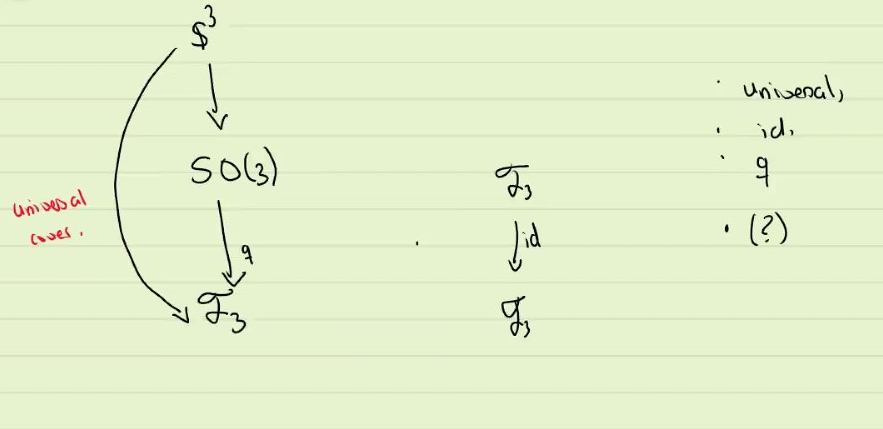 S³
SO(3)
universal
cover.
q
𝒯₃
𝒯₃
id
𝒯₃
· universal,
· id,
· q
· (?)